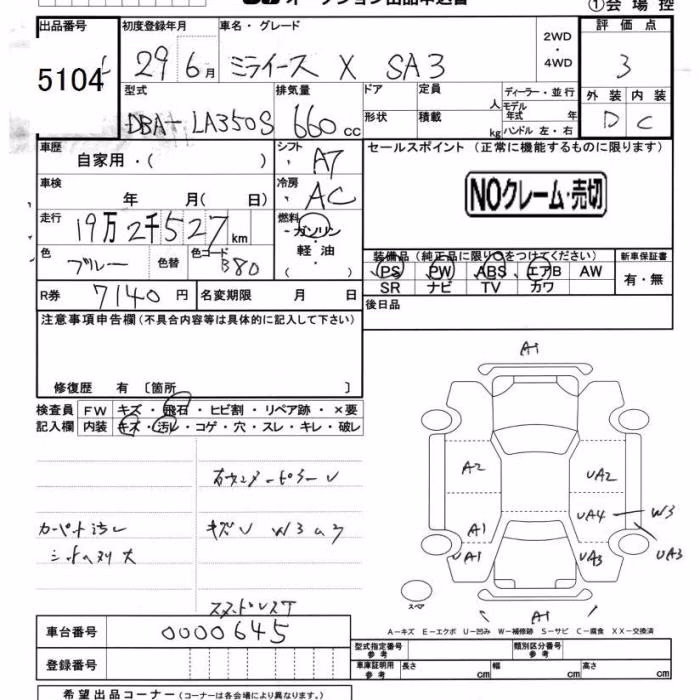 オークション出品申込書
①会場控
出品番号 初度登録年月 車名・グレード 2WD・4WD 評価点
5104 29 6月 ミライース X SA3 3
型式 排気量 ドア 定員 人 ディーラー・並行 外装 内装
DBA- LA350S 660cc 形状 積載 kg モデル年式 年 ハンドル 左・右 D C
車歴 シフト セールスポイント(正常に機能するものに限ります)
自家用・( ) AT
車検 年 月( 日) 冷房 AC NOクレーム・売切
走行 19万2千527km 燃料 ガソリン
軽油
( )
色 ブルー 色替 色コード B80
装備品(純正品に限り○をつけてください) 新車保証書
PS PW ABS エアB AW 有・無
SR ナビ TV カワ
R券 7140円 名変期限 月 日 後日品
注意事項申告欄(不具合内容等は具体的に記入して下さい)
修復歴 有〔箇所 〕
検査員 FW キズ・飛石・ヒビ割・リペア跡・×要
記入欄 内装 キズ・汚レ・コゲ・穴・スレ・キレ・破レ
カーペット汚レ
キズU W3
A1
A2 UA2
A1 UA4 W3
UA1 UA3 UA3
A1
スペア
A-キズ E-エクボ U-凹み W-補修跡 S-サビ C-腐食 XX-交換済
車台番号 0000645
登録番号
型式指定番号 参考 類別区分番号 参考
車庫証明用 参考 長さ cm 幅 cm 高さ cm
希望出品コーナー(コーナーは各会場により異なります。)